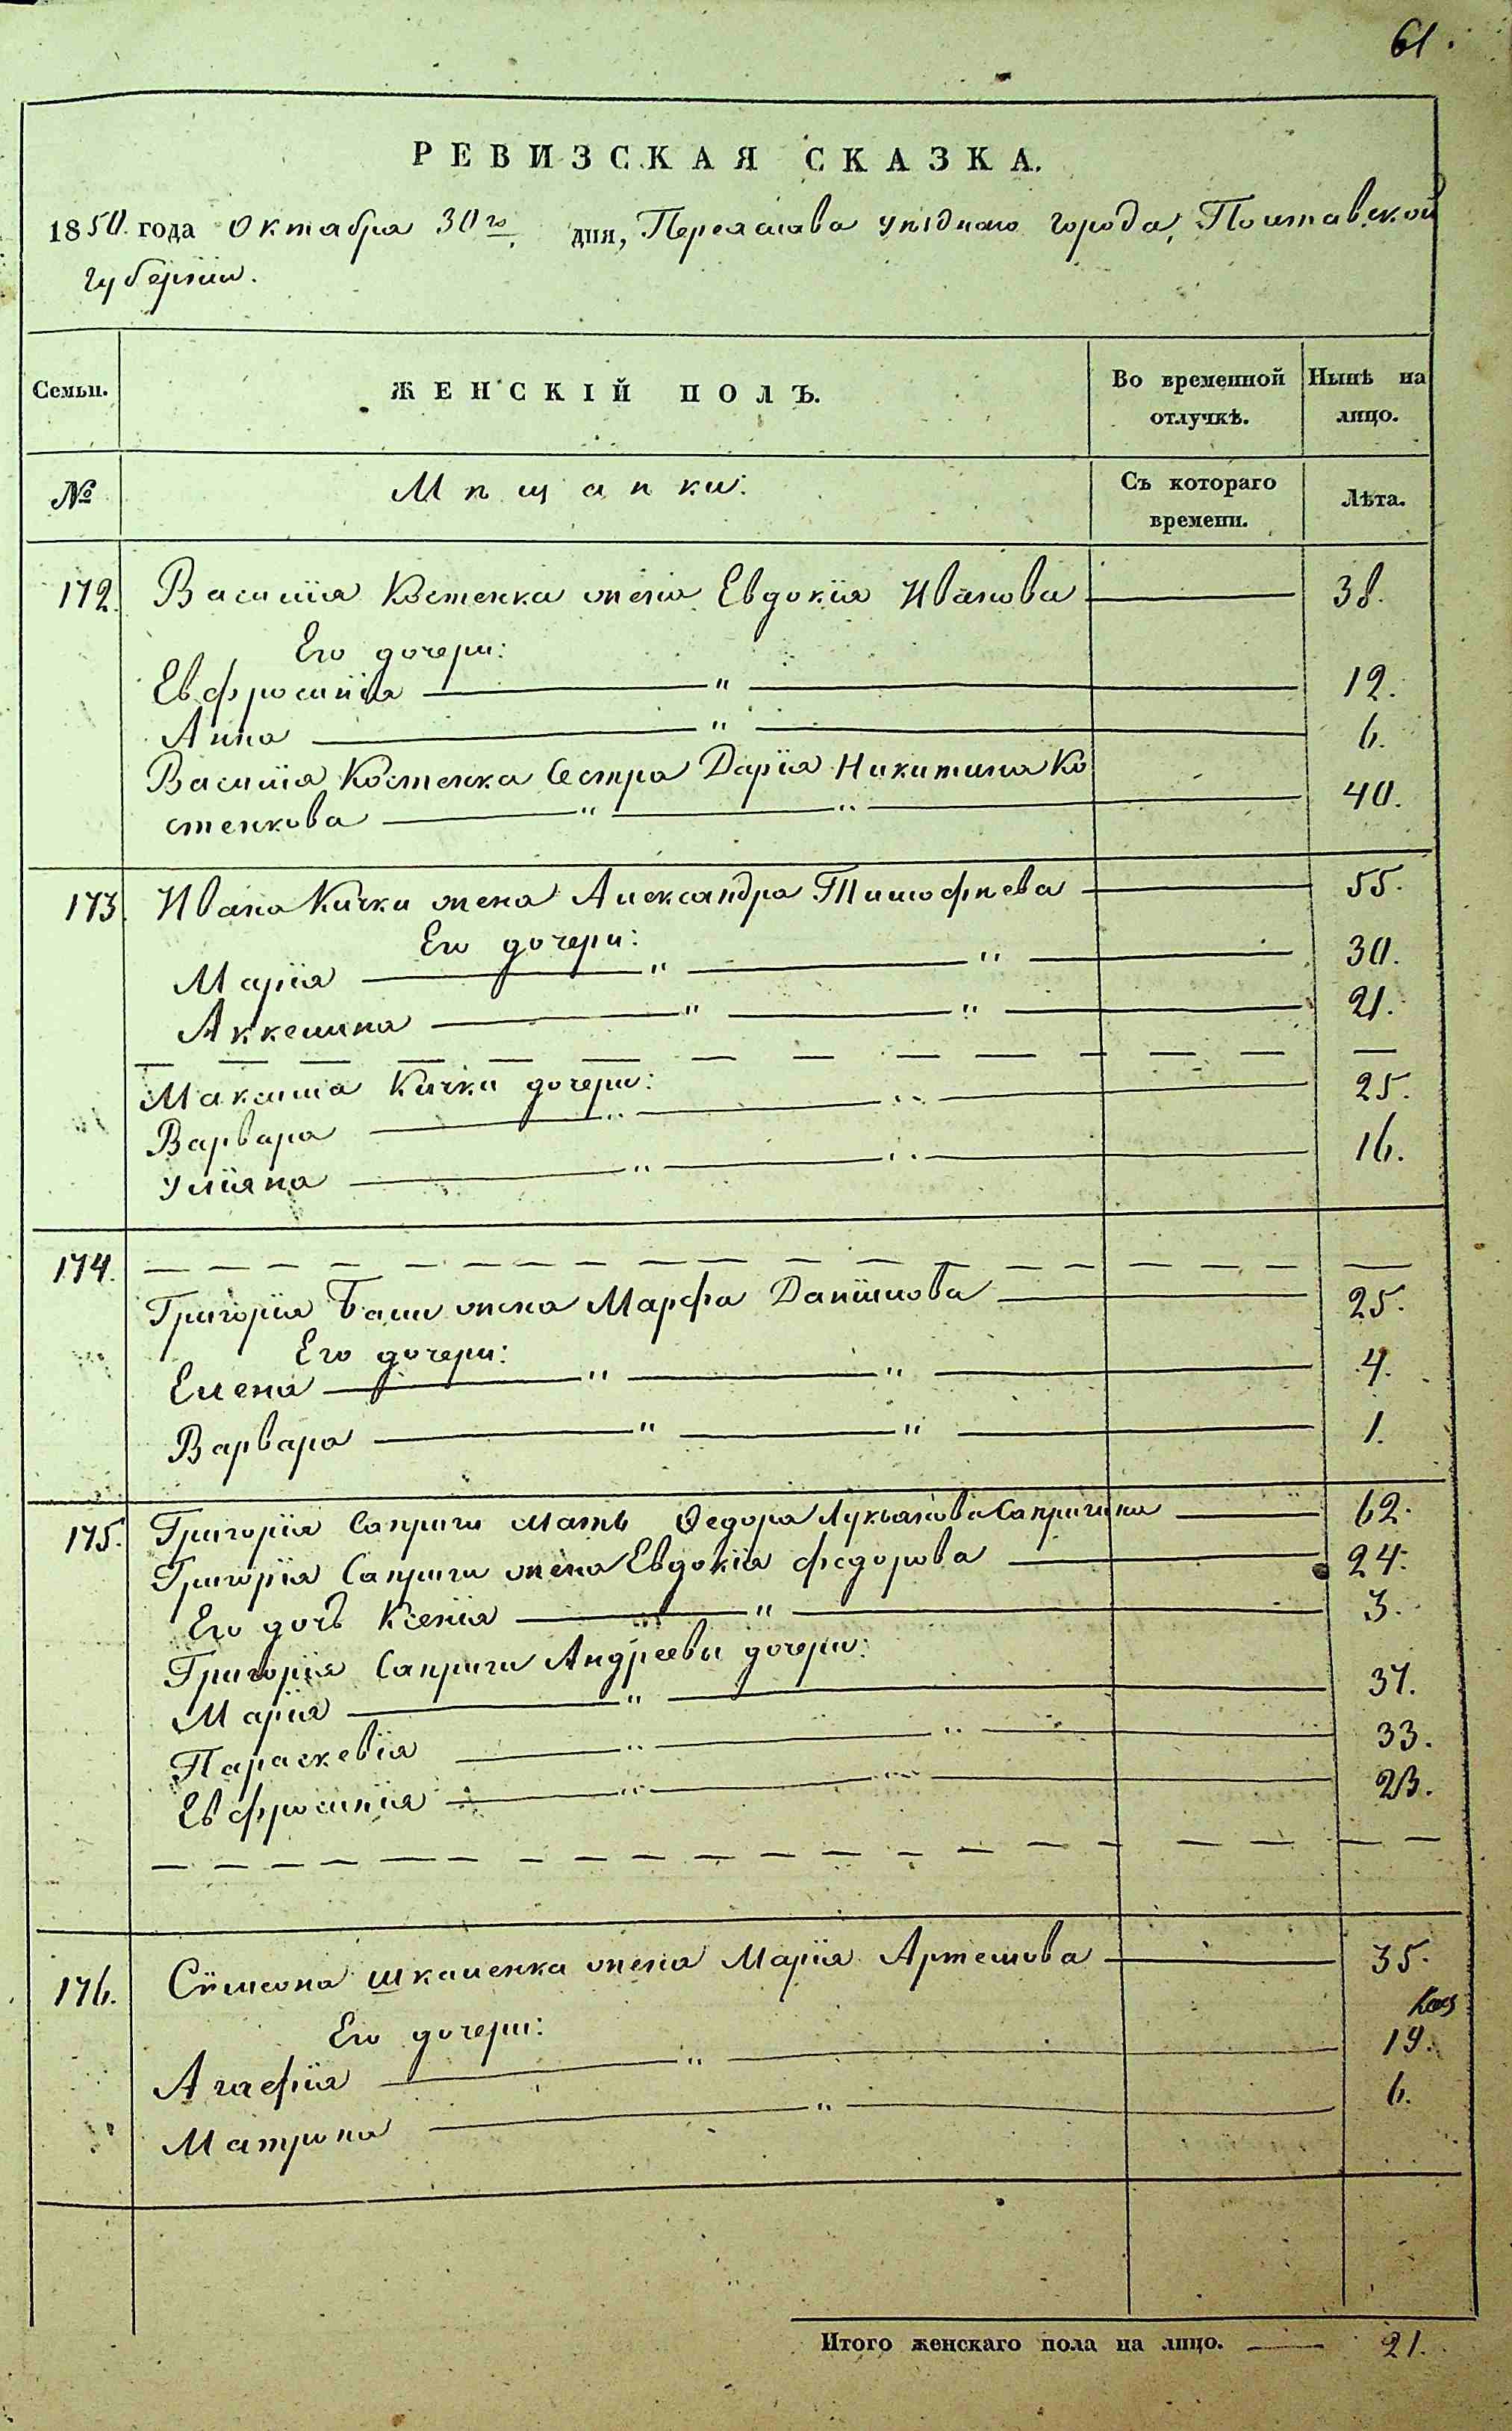 61.
РЕВИЗСКАЯ СКАЗКА.
1850 года Октября 30го дня, Переяслава уѣзднаго города, Полтавской
Губерніи.
Семьи. ЖЕНСКІЙ ПОЛЪ. Во временной отлучкѣ. Нынѣ на лицо.
№ Мѣщанки: Съ котораго времени. Лѣта.
172. Василія Костенка жена Евдокія Иванова 38.
Его дочери:
Евфросинія " 12.
Анна " 6.
Василія Костенка Сестра Дарія Никитина Ко
стенкова " " 40.
173. Ивана Кички жена Александра Тимофѣева 55.
Его дочери:
Марія " " 30.
Аккелина " " 21.
Максима Кички дочери:
Варвара " " 25.
Уліяна " " 16.
174.
Григорія жена Марфа Даніилова 25.
Его дочери:
Елена " " 4.
Варвара " " 1.
175. Григорія Саприги мать Федора Лукьянова Сапригина 62.
Григорія Саприги жена Евдокія Федорова 24.
Его дочь Ксенія " 3.
Григорія Саприги Андреевы дочери:
Марія " 37.
Параскевія " " 33.
Евфросинія " " 23.
176. Сѵмеона Шкаленка жена Марія Артемова 35.
Его дочери:
Агафія " 19.
Матрона " 6.
Итого женскаго пола на лицо. 21.